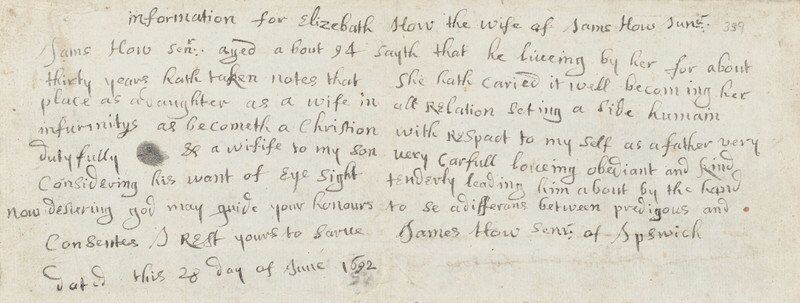 information for Elizebath How the wife of Jams How Junr. 339
Jams How senr. aged about 94 sayth that he liueing by her for about
thirty years hath taken notes that she hath caried it well becoming her
place as a daughter as a wife in all Relation seting a side humain
infurmitys as becometh a Christion with Respact to my self as a father very
dutyfully & a wifife to my son uery Carfull loueing obediant and kind
Considering his want of eye sight tenderly leading him about by the hand
now desuring god may guide your honours to se a differans between predigous and
Consentes I Rest yours to Sarue James How senr. of Ipswich
dated this 28 day of June 1692